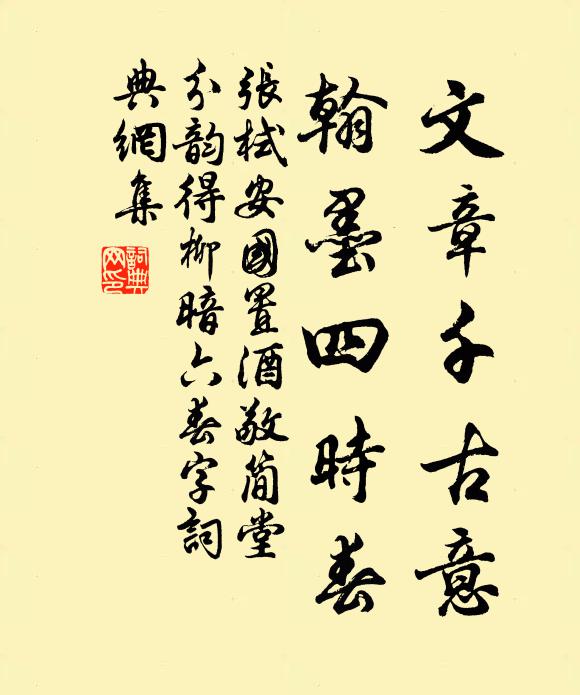 文章千古意
翰墨四時春
張栻安國置酒敬簡堂
分韵得柳暗六春字詞
典網集
詞典
网印